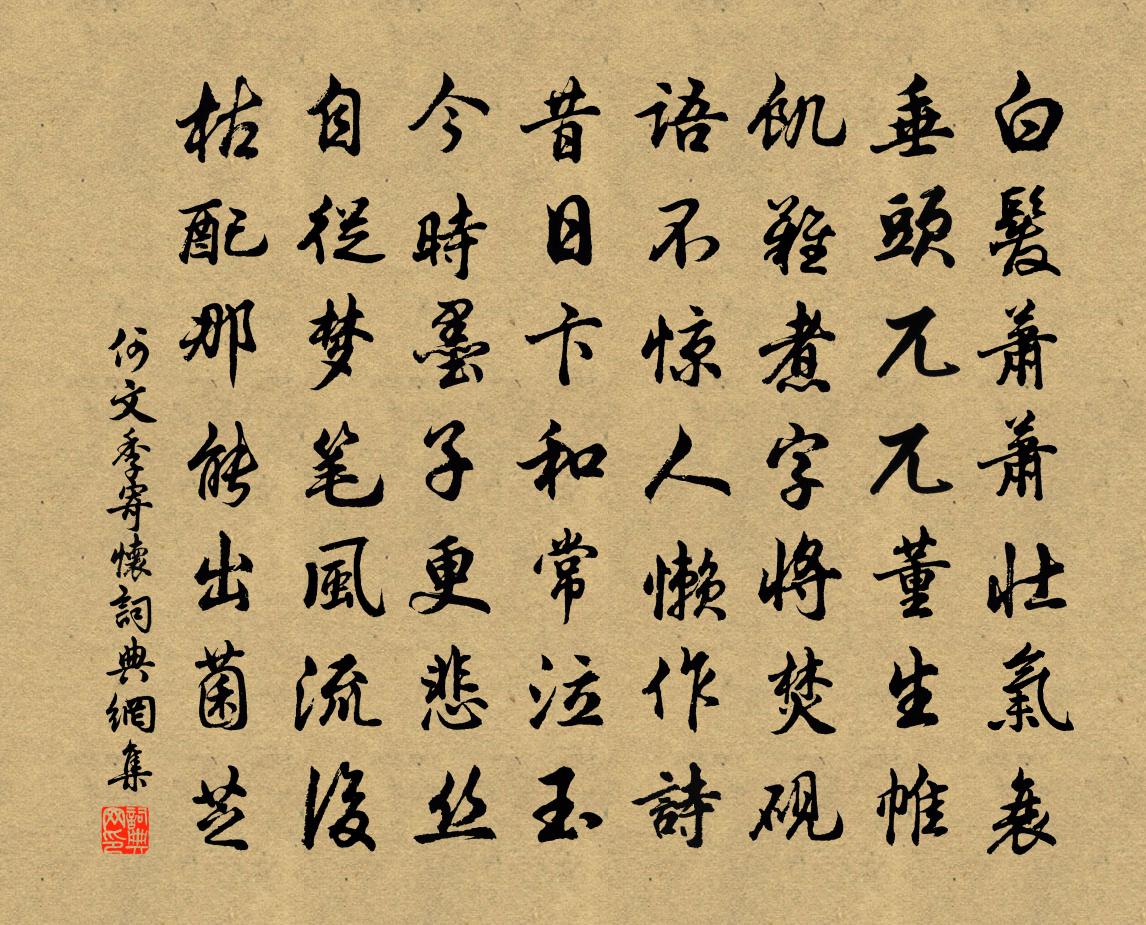 白髮萧萧壮氣衰
垂頭兀兀董生帷
飢難煮字将焚砚
語不惊人懒作詩
昔日卞和常泣玉
今時墨子更悲丝
自從梦笔風流後
枯配那能出菌芝
何文季寄懷詞典網集
詞典网印